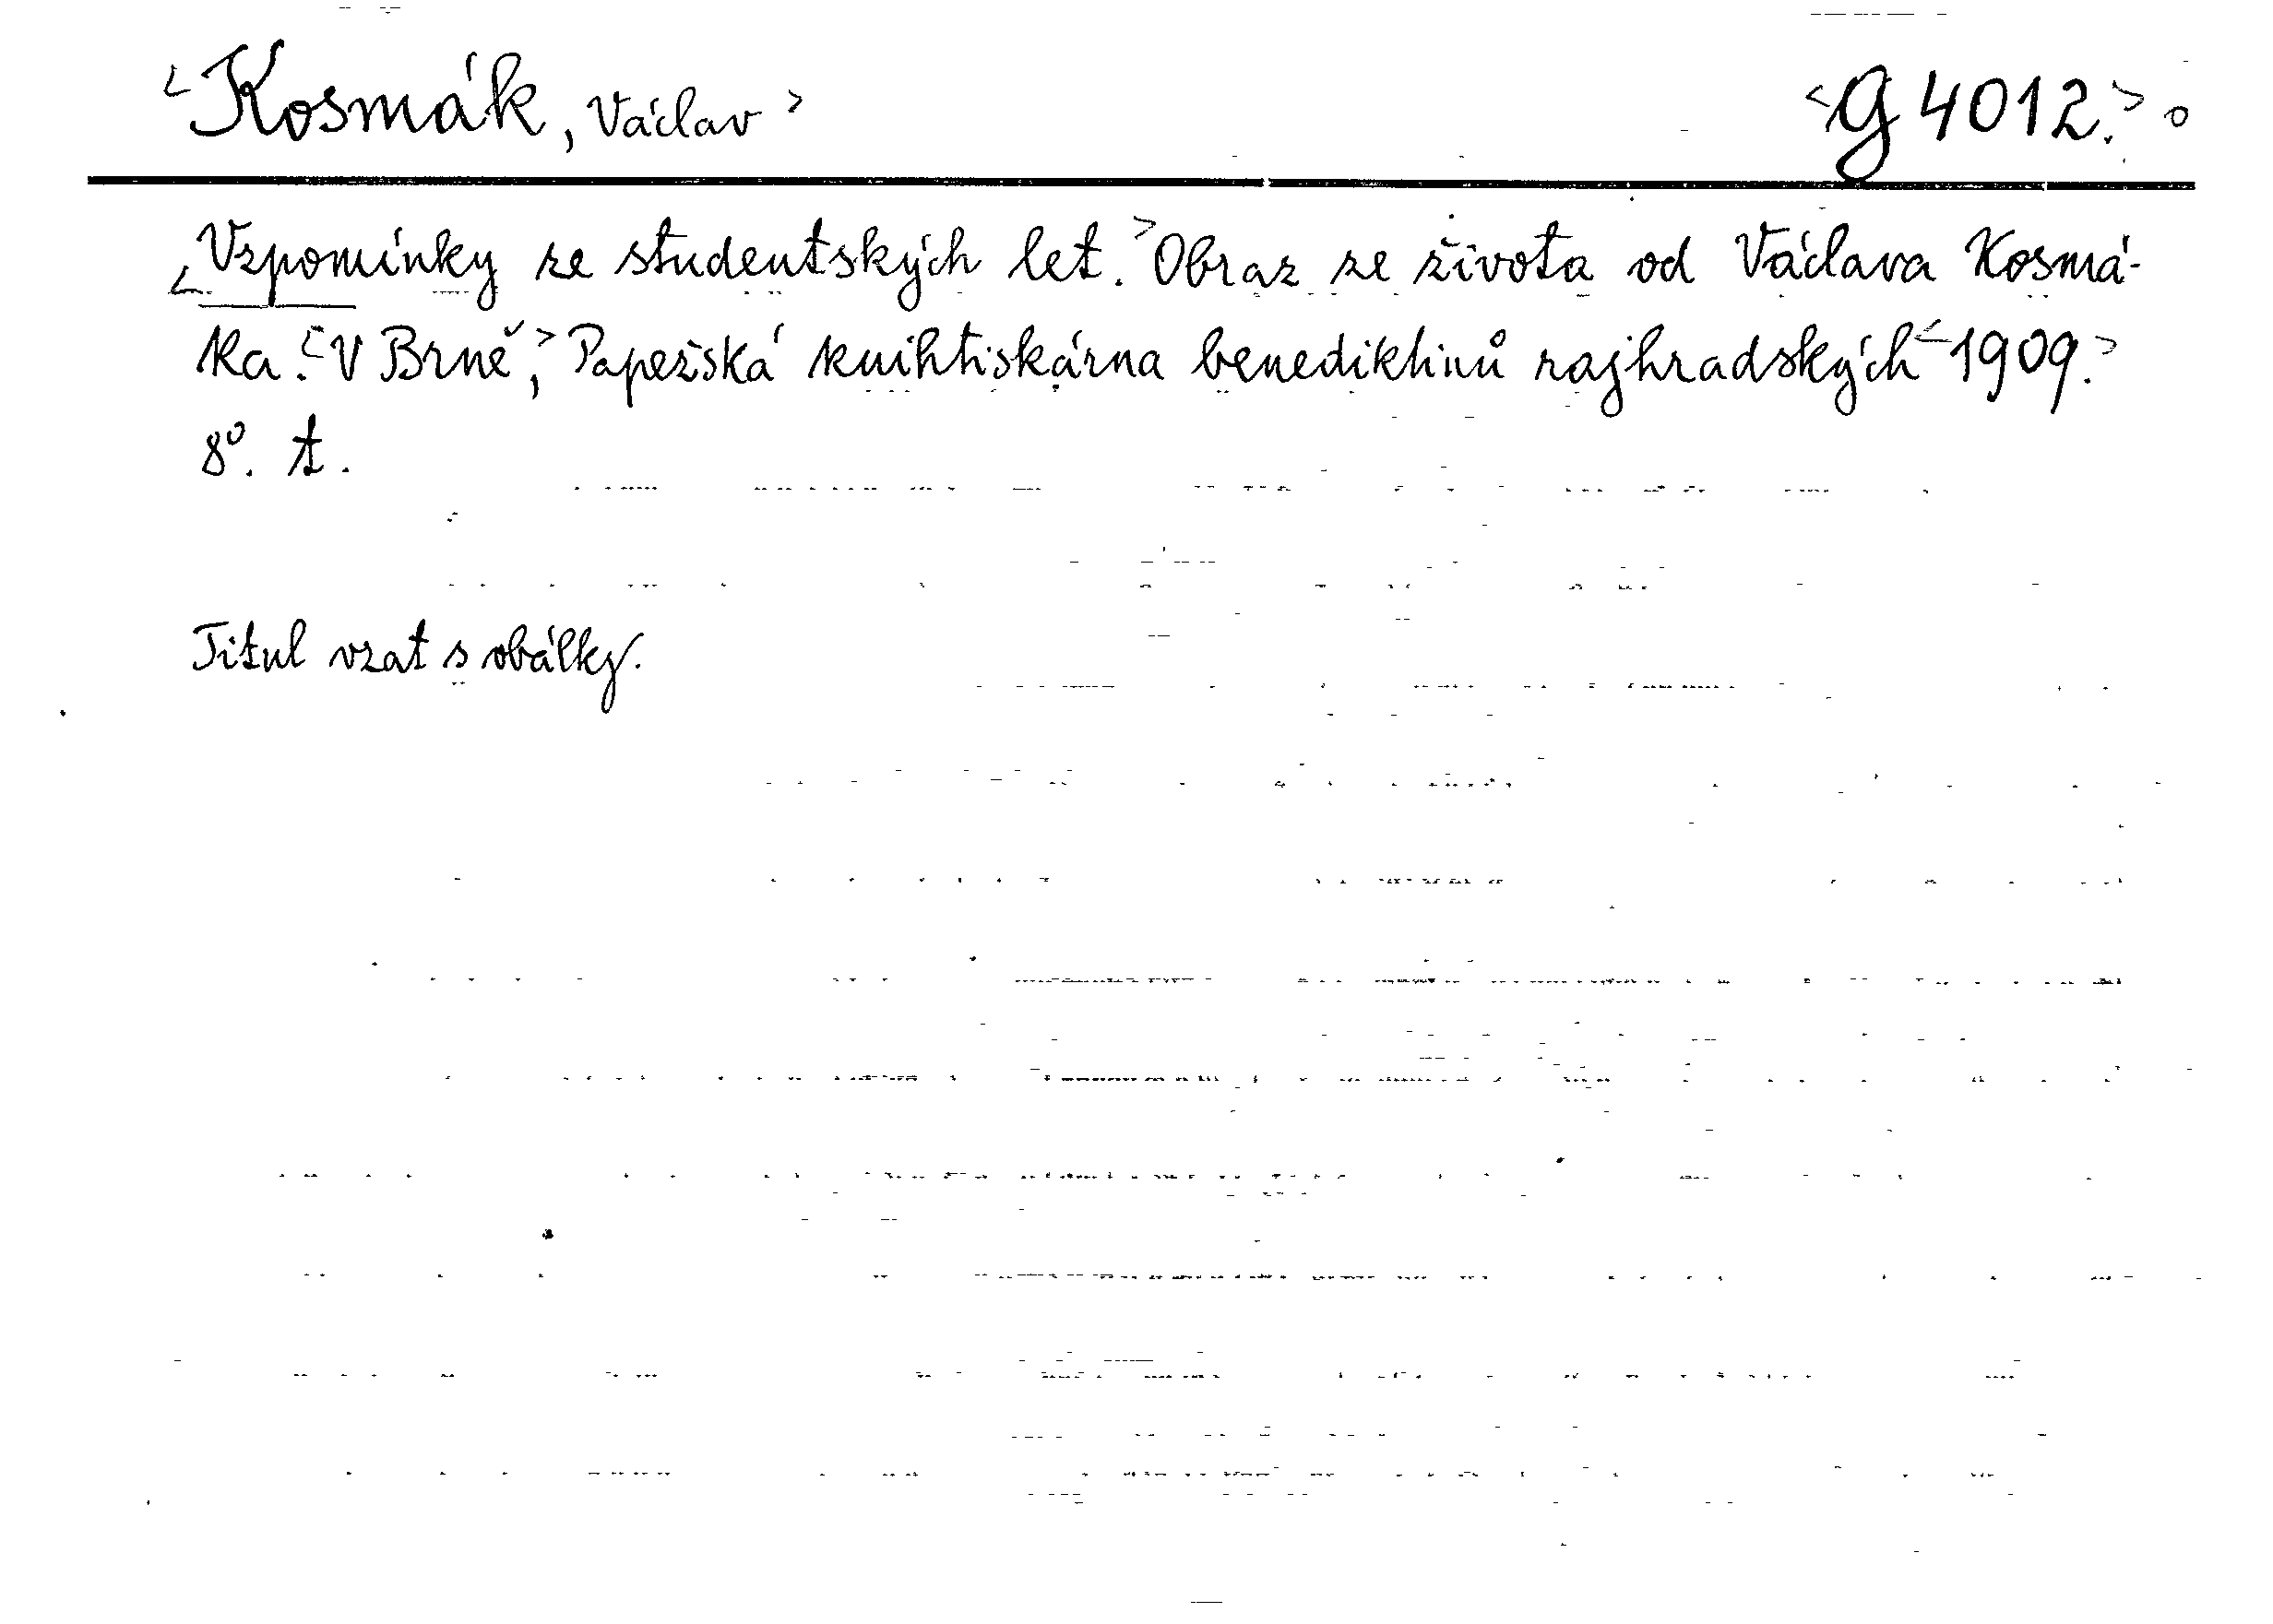 <Kosmák, Václav> <G 4012.> o
<Vzpomínky ze studentských let.> Obraz ze života od Václava Kosmá-
ka. <V Brně,> Papežská knihtiskárna benediktinů rajhradských <1909.>
8°. t.
Titul vzat s obálky.